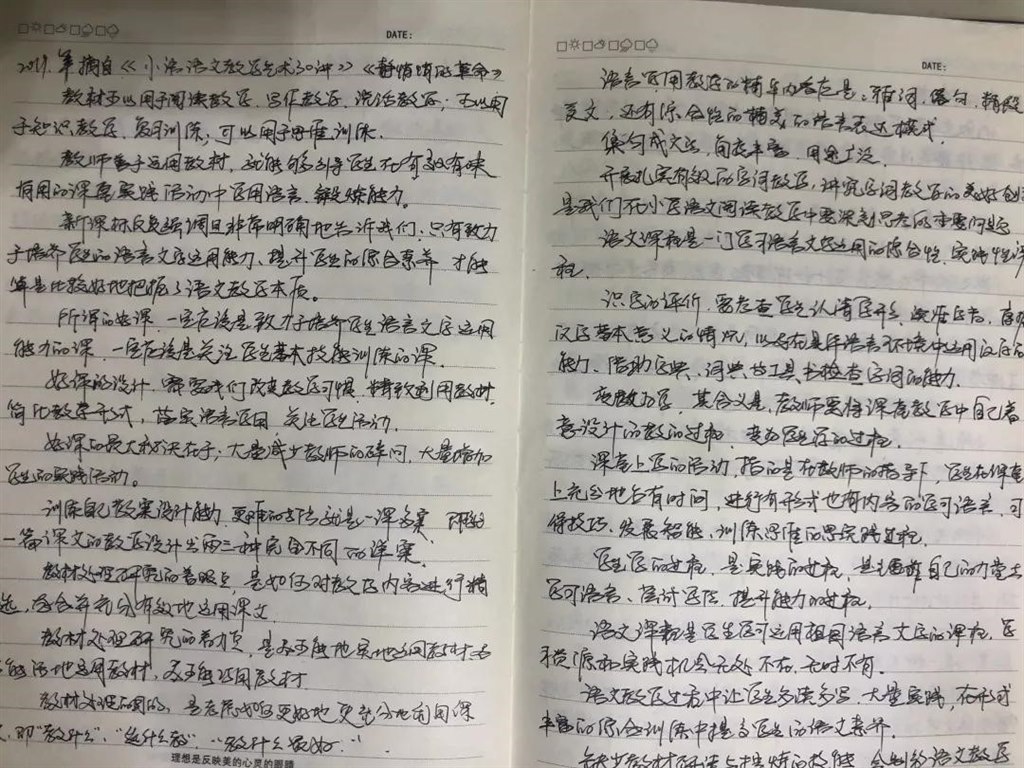 DATE:
2019年摘自《小语语文教学艺术30讲》《静悄悄的革命》
教材可以用于阅读教学,写作教学,说话教学;可以用
于知识教学,复习训练,可以用于思维训练。
教师善于运用教材,就能够引导学生在有趣有味
有用的课堂实践活动中学用语言,锻炼能力。
新课标反复强调且非常明确地告诉我们,只有致力
于培养学生的语言文字运用能力、提升学生的综合素养,才能
算是比较好地把握了语文教学本质。
所谓的好课,一定应该是致力于培养学生语言文字运用
能力的课,一定应该是关注学生基本技能训练的课。
好课的设计,需要我们改变教学习惯,精致利用教材,
简化教学形式,落实语言学用,关注学生活动。
好课的最大秘诀在于:大量减少教师的碎问,大量增加
学生的实践活动。
训练自己教案设计能力,更难的方法就是一课多案,即给
一篇课文的教学设计出两三种完全不同的课案。
教材处理研究的着眼点,是如何对教学内容进行精
选,整合并充分有效地运用课文
教材处理研究的着力点,是
能活地运用教材,
教材处理的目的,是考虑如何更好地更充分地利用课
文,即“教什么”、“选什么教”、“教什么最好”。
理想是反映美的心灵的眼睛
DATE:
语言学用教学的精华内容应是:雅词,佳句,精段,
美文,还有综合性的精美的语言表达模式。
集句成文法,角度丰富,用途广泛。
开展扎实有效的字词教学,讲究字词教学的美好创
是我们在小学语文阅读教学中要深刻思考的重要问题
语文课程是一门学习语言文字运用的综合性、实践性课
程。
识字的评价,要考查学生认清字形、读准字音、
汉字基本意义的情况,以及在具体语言环境中运用汉字的
能力,借助字典、词典等工具书检查字词的能力。
变教为学,其含义是,教师要将课堂教学中自己着
意设计的教的过程,变为学生学的过程。
课堂上学的活动,指的是在教师的指导下,学生在课堂
上充分地占有时间,进行有形式也有内容的学习语言、习
得技巧、发展智能、训练思维的实践过程。
学生学的过程,是实践的过程,是凭借自己的力量去
学习语言、探讨学法、提升能力的过程。
语文课程是学生学习运用祖国语言文字的课程,学
习资源和实践机会无处不在,无时不有。
语文教学过程中让学生多读多写,大量实践,在形式
丰富的综合训练中提高学生的语文素养。
缺少教材研读与提炼的技能,会制约语文教学